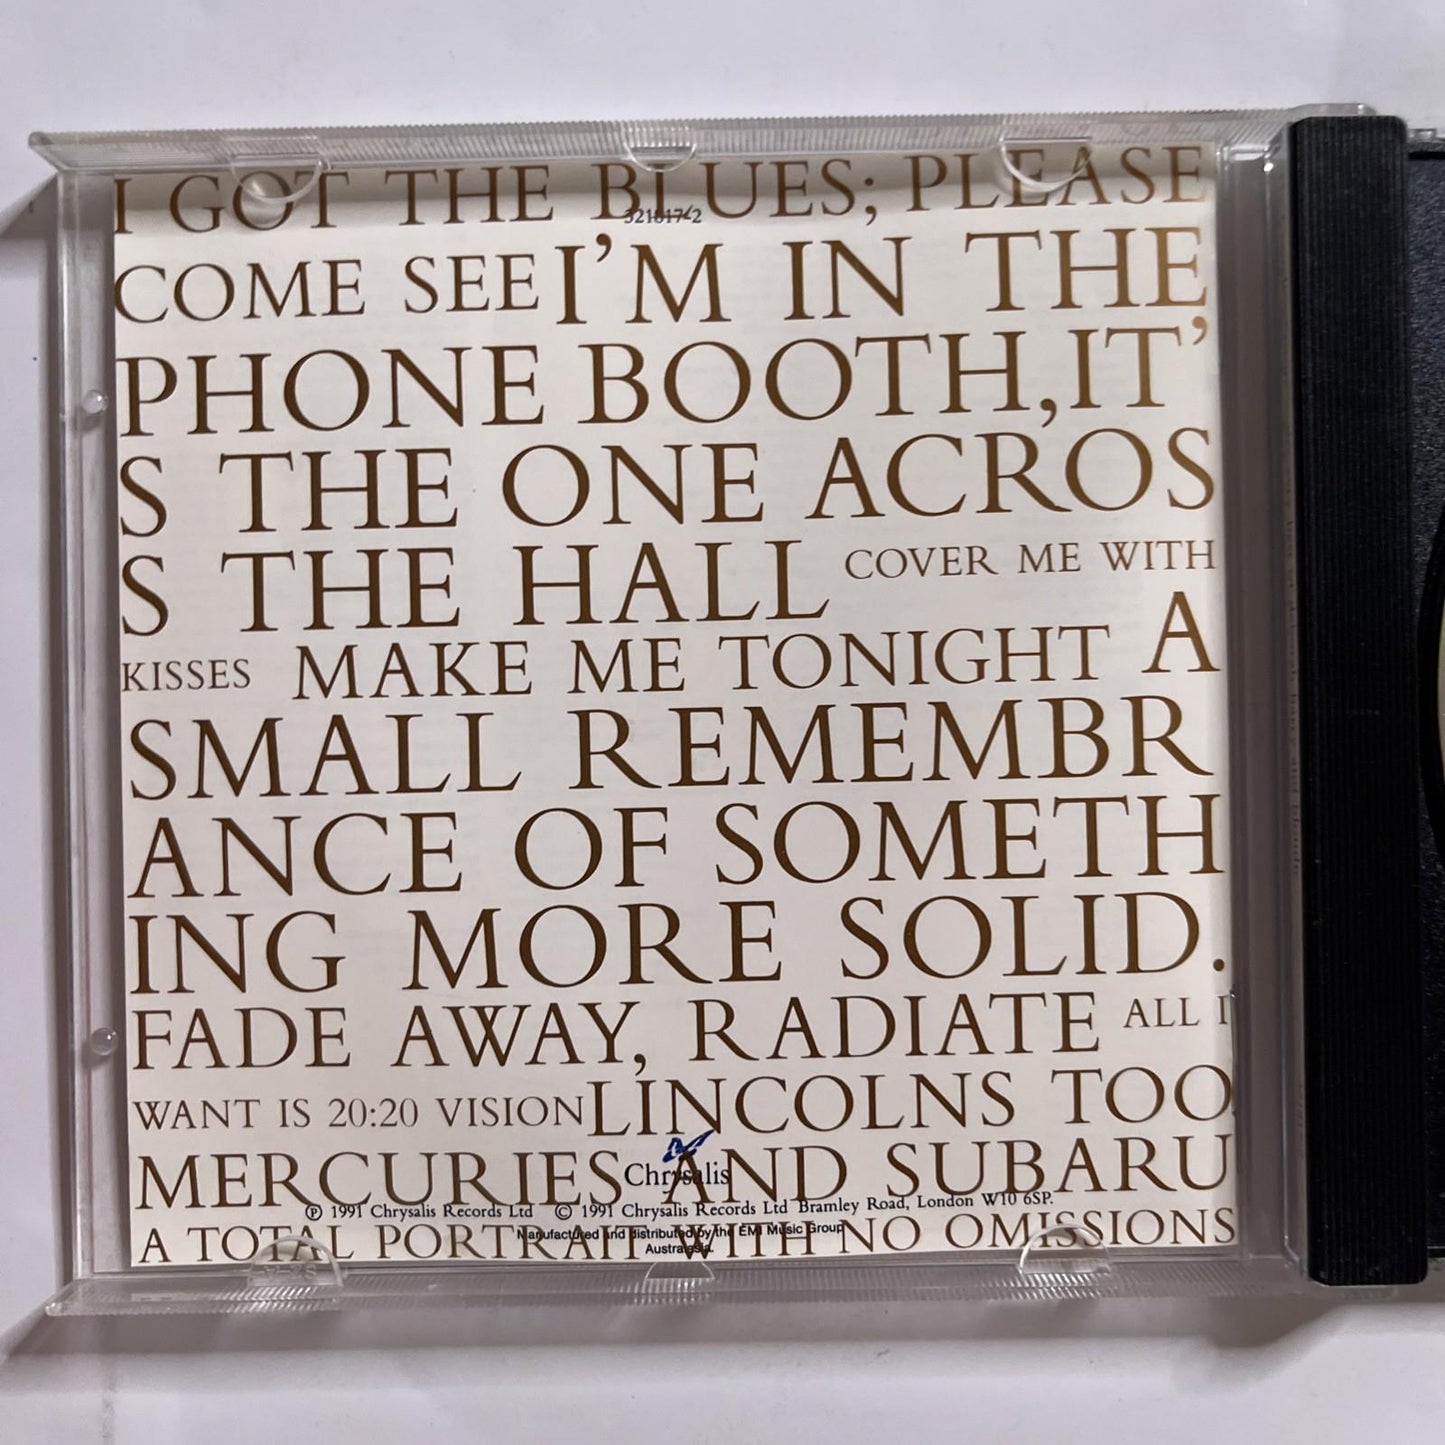 I GOT THE BLUES; PLEASE
321817-2
COME SEE I'M IN THE
PHONE BOOTH, IT'
S THE ONE ACROS
S THE HALL COVER ME WITH
KISSES MAKE ME TONIGHT A
SMALL REMEMBR
ANCE OF SOMETH
ING MORE SOLID.
FADE AWAY, RADIATE ALL I
WANT IS 20:20 VISION LINCOLNS TOO
MERCURIES AND SUBARU
Chrysalis
℗ 1991 Chrysalis Records Ltd © 1991 Chrysalis Records Ltd Bramley Road, London W10 6SP.
A TOTAL PORTRAIT WITH NO OMISSIONS
Manufactured and distributed by the EMI Music Group
Australasia.